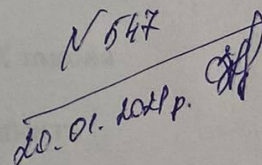 N 547
20.01.2021р.